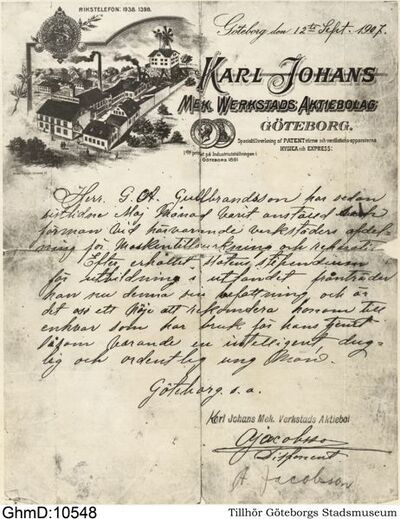 RIKSTELEFON: 1938. 1398.
Göteborg den 12te Sept. 1907.
KARL JOHANS
MEK. WERKSTADS AKTIEBOLAG,
GÖTEBORG.
Specialtillverkning af PATENT värme och ventilationsapparaterna
HYGIEA och EXPRESS:
på Industriutställningen i
GÖTEBORG 1891
Herr G. A. Gullbrandsson har sedan
sistlidne Maj Månad varit anställd som
förman vid härvarande verkstäders afdel-
ning för Maskintillverkning och rekvisi-
Efter erhållet Statens stipendium
för utbildning i utlandet frånträder
han nu denna sin befattning och är
det oss ett nöje att rekomdera honom till
enhvar som har bruk för hans tjenst
såsom varande en intelligent dug-
lig och ordentlig ung Man.
Göteborg s.a.
Karl Johans Mek. Verkstads Aktiebol
A Jacobsson
Disponent
A. Jacobson
GhmD:10548
Tillhör Göteborgs Stadsmuseum